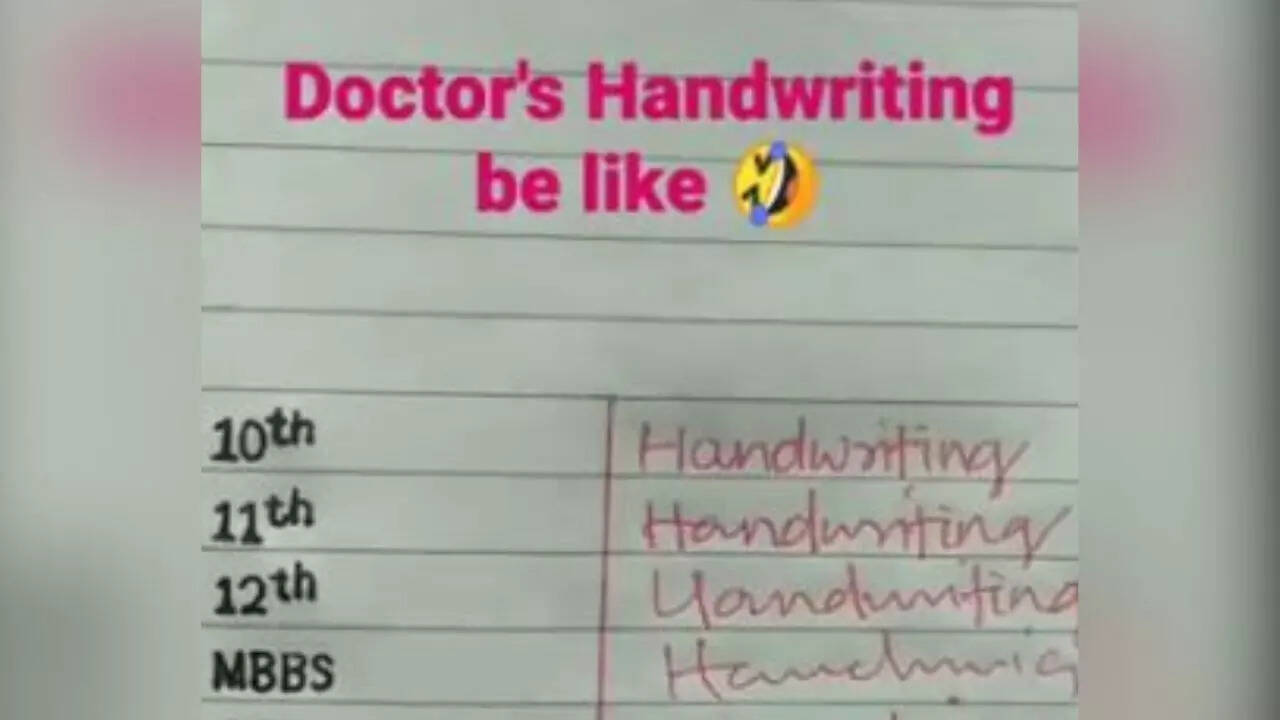 Doctor's Handwriting
be like 🤣
10th Handwriting
11th Handwriting
12th Handwriting
MBBS